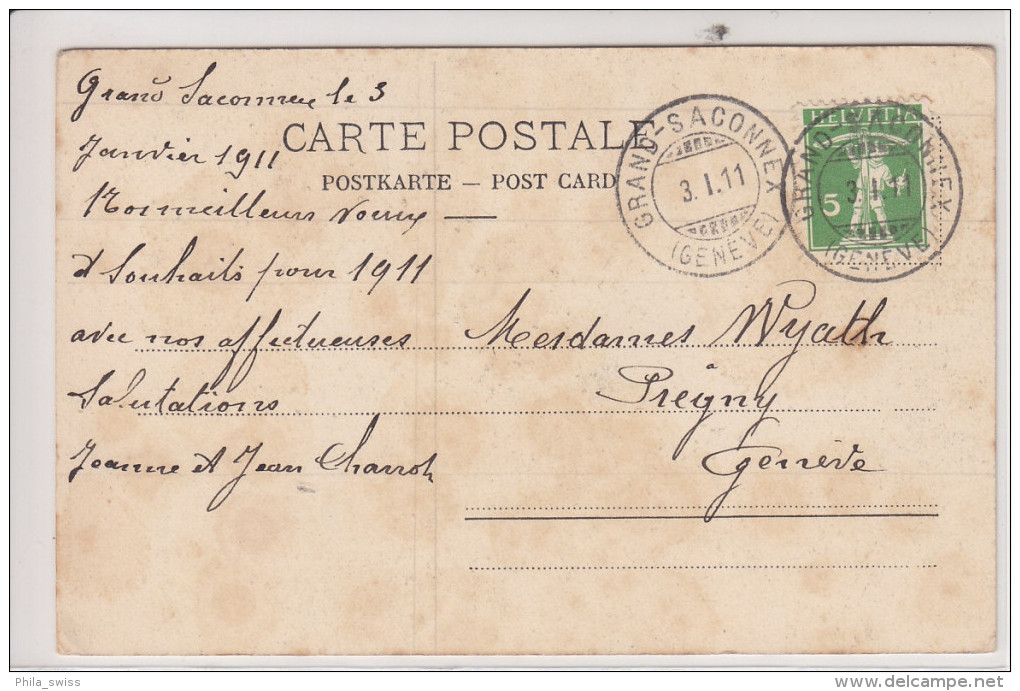 Grand Saconnex le 3
Janvier 1911
Nos meilleurs voeux
et Souhaits pour 1911
avec nos affectueuses
Salutations
Jeanne et Jean
CARTE POSTALE
POSTKARTE — POST CARD
GRAND-SACONNEX
3.I.11
(GENÈVE)
HELVETIA
5
GRAND-SACONNEX
3.I.11
(GENÈVE)
Mesdames Wyath
à
Pregny
Genève
Phila_swiss
delcampe.net